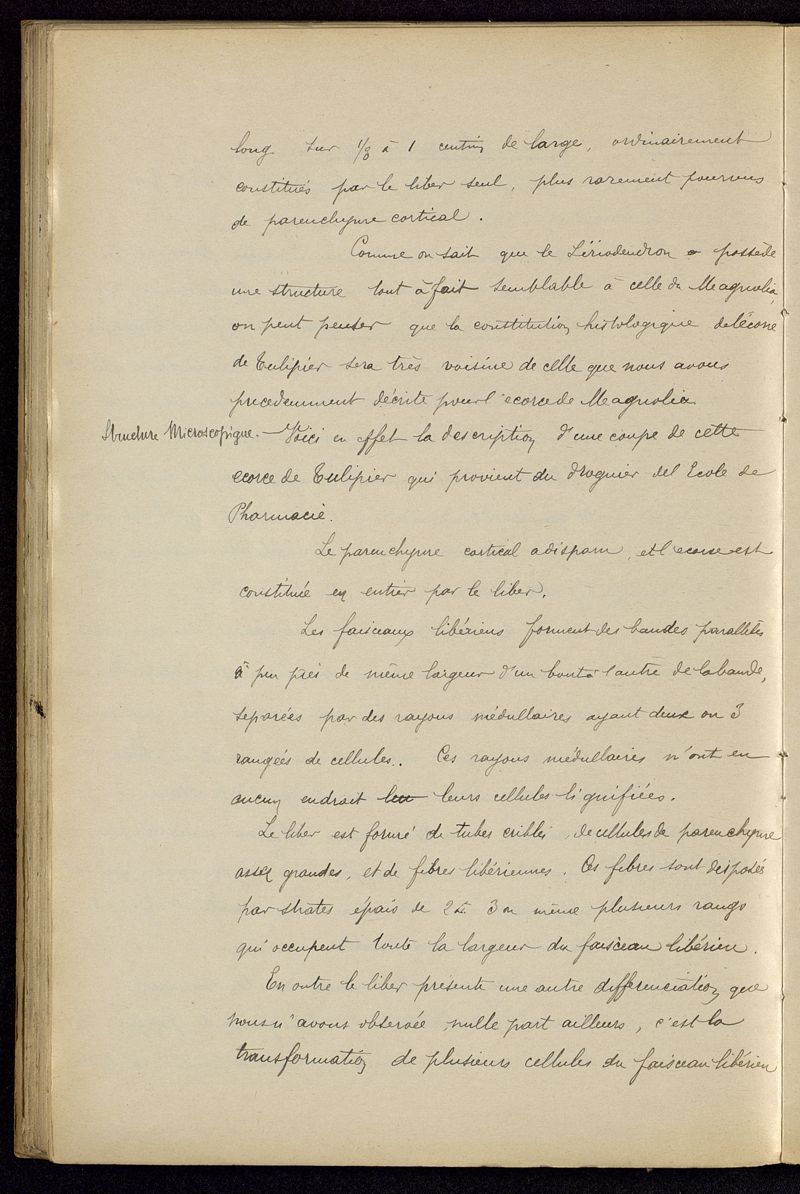 long sur 1/8 à 1 centim de large, ordinairement
constitués par le liber seul, plus rarement pourvus
de parenchyme cortical.
Comme on sait que le Liriodendron possède
une structure tout à fait semblable à celle du Magnolia,
on peut penser que la constitution histologique de l'écorce
de Tulipier sera très voisine de celle que nous avons
precedemment décrite pour l'ecorce de Magnolia
Structure Microscopique. — Voici en effet la description d'une coupe de cette
ecorce de Tulipier qui provient du droguier de l'Ecole de
Pharmacie.
Le parenchyme cortical a disparu, et l'ecorce est
constituée en entier par le liber.
Les faisceaux libériens forment des bandes parallèles
à peu près de même largeur d'un bout à l'autre de la bande,
separées par des rayons médullaires ayant deux ou 3
rangées de cellules. Ces rayons médullaires n'ont en
aucun endroit leurs cellules lignifiées.
Le liber est formé de tubes criblés, de cellules de parenchyme
assez grandes, et de fibres libériennes. Ces fibres sont disposés
par strates épais de 2 à 3 ou même plusieurs rangs
qui occupent toute la largeur du faisceau libérien.
En outre le liber présente une autre differenciation que
nous n'avons observée nulle part ailleurs, c'est la
transformation de plusieurs cellules du faisceau libérien